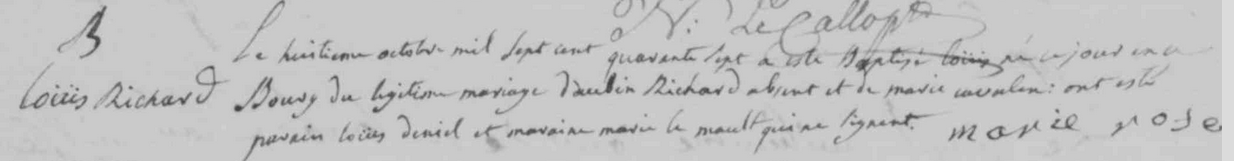 N: Le Gallo ptre
B
Le huitieme octobre mil sept cent quarante sept a este Baptisé loüis né ce jour en ce
loüis Richard
Bourg du legitime mariage d'aubin Richard absent et de marie cavalen: ont esté
parain loüis deniel et maraine marie le mault qui ne signent. marie rose